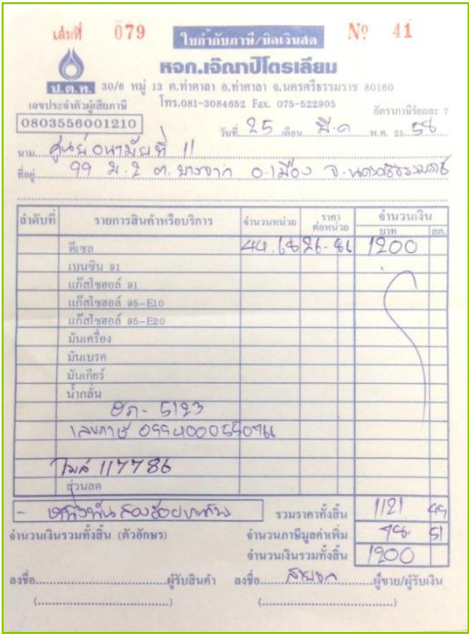 เล่มที่ 079 ใบกำกับภาษี/บิลเงินสด № 41
หจก.เจ๊ณาปิโตรเลียม
ป.ต.ท. 30/6 หมู่ 13 ต.ท่าศาลา อ.ท่าศาลา จ.นครศรีธรรมราช 80160
เลขประจำตัวผู้เสียภาษี โทร.081-3084652 Fax. 075-522905 อัตราภาษีร้อยละ 7
0803556001210
วันที่ 25 เดือน มี.ค พ.ศ. 25 58
นาม ศูนย์อนามัยที่ 11
ที่อยู่ 99 ม.2 ต.บางจาก อ.เมือง จ.นครศรีธรรมราช
ลำดับที่ รายการสินค้าหรือบริการ จำนวนหน่วย ราคาต่อหน่วย จำนวนเงิน
บาท สต.
ดีเซล 44.68 26-86 1200
เบนซิน 91
แก๊สโซฮอล์ 91
แก๊สโซฮอล์ 95-E10
แก๊สโซฮอล์ 95-E20
มันเครื่อง
มันเบรค
มันเกียร์
น้ำกลั่น
5123
เลขภาษี
ไมล์ 117786
ส่วนลด
- หนึ่งพันสองร้อยบาทถ้วน รวมราคาทั้งสิ้น 1121 49
จำนวนเงินรวมทั้งสิ้น (ตัวอักษร) จำนวนภาษีมูลค่าเพิ่ม 78 51
จำนวนเงินรวมทั้งสิ้น 1200
ลงชื่อ ผู้รับสินค้า ลงชื่อ ผู้ขาย/ผู้รับเงิน